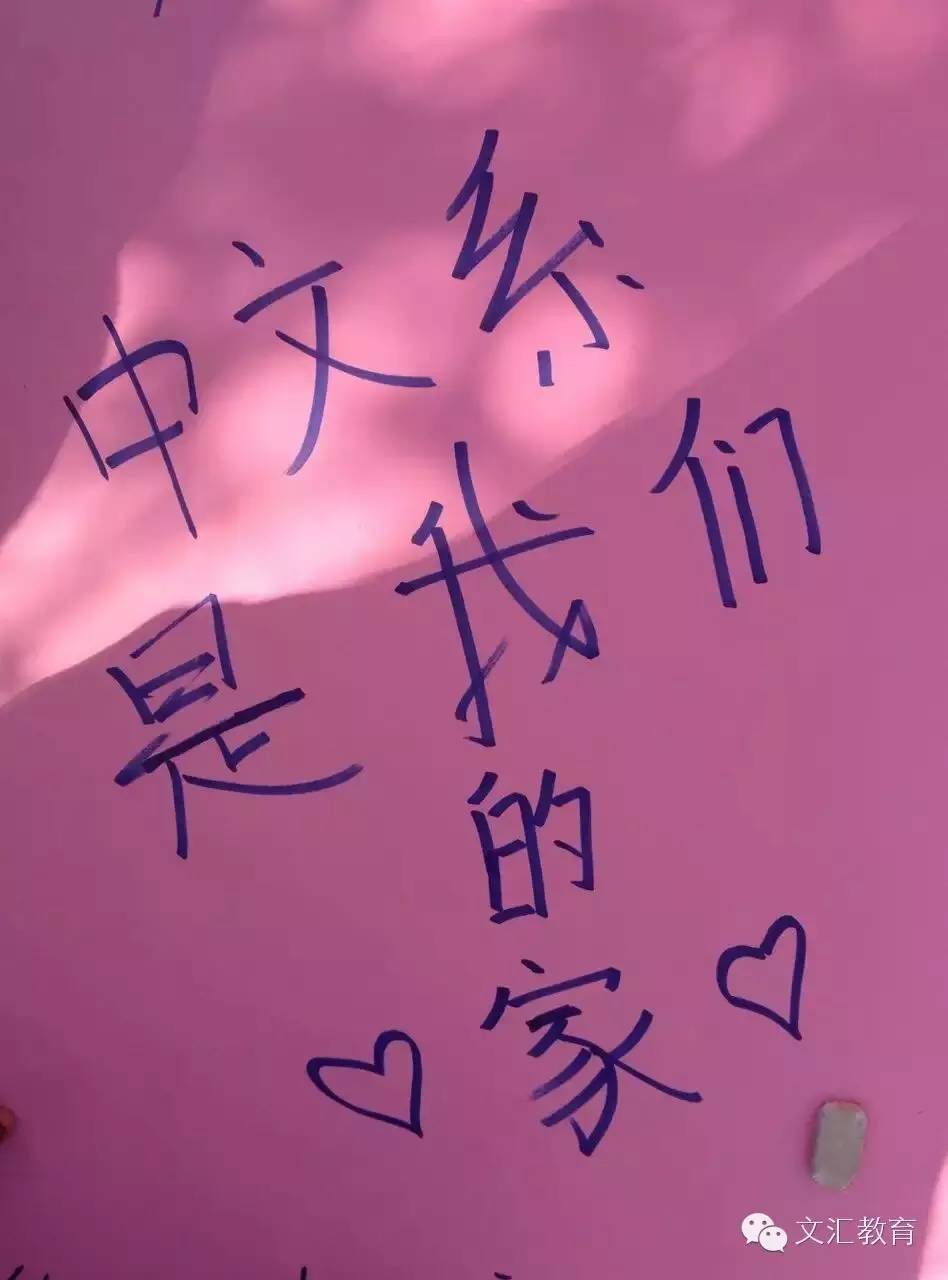 中文系
是我们
的
家
文汇教育